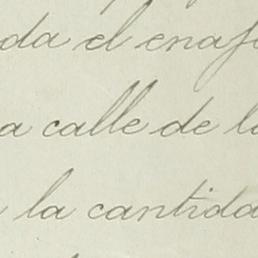 da el enaj
a calle de l
la cantida